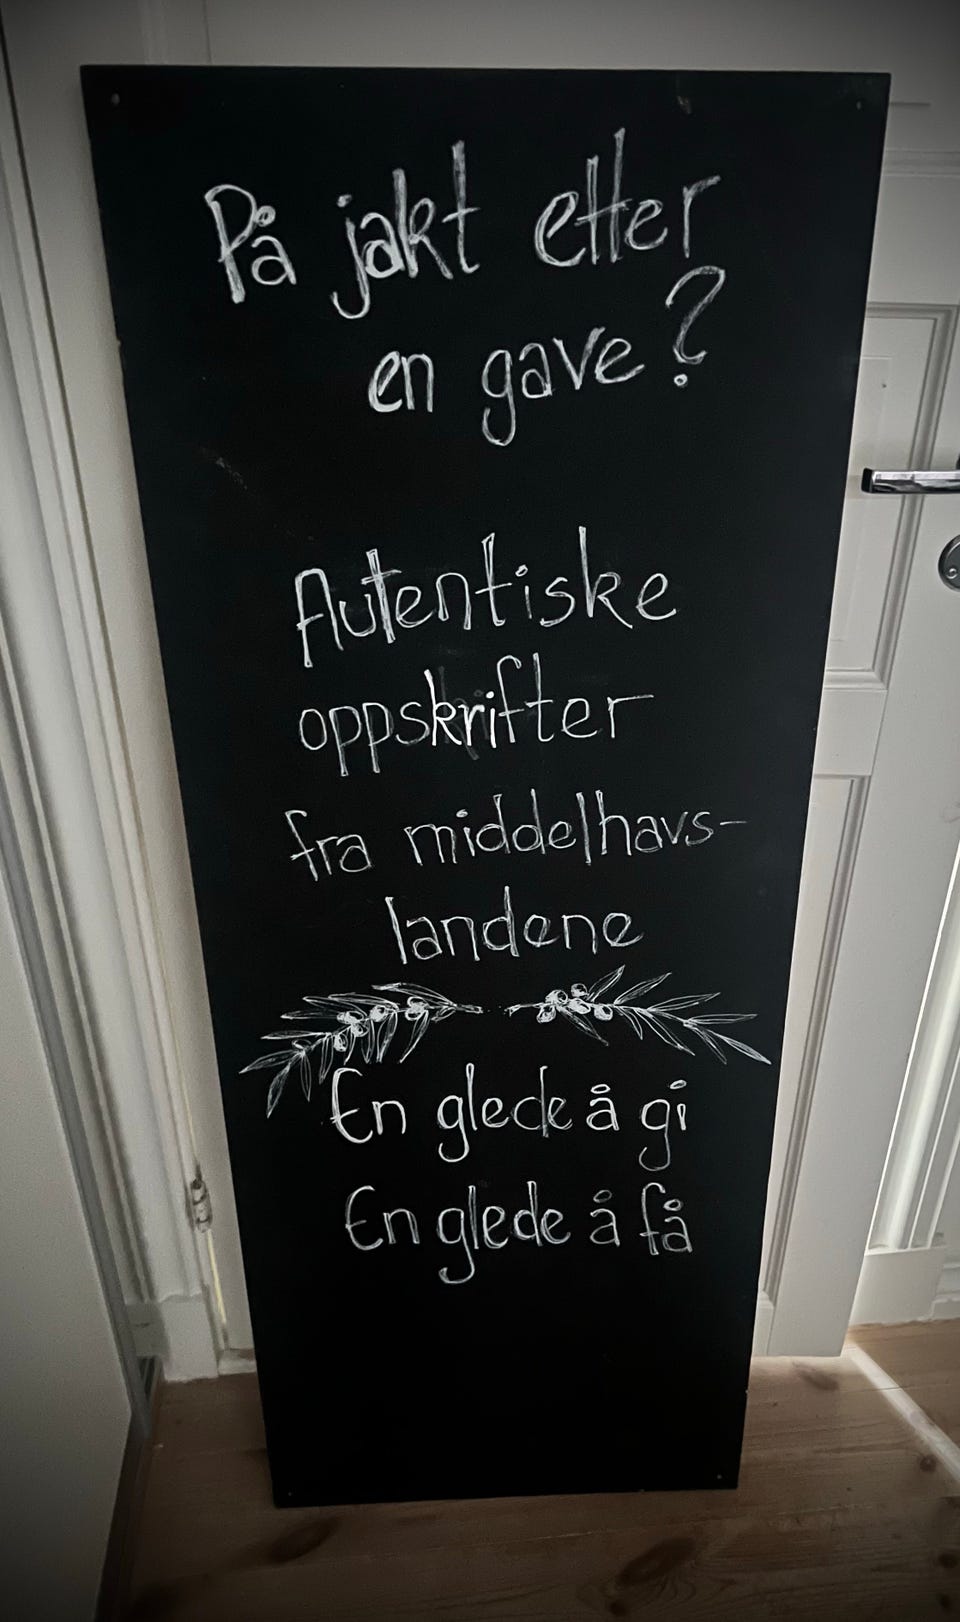 På jakt etter
en gave?
Autentiske
oppskrifter
fra middelhavs-
landene
En glede å gi
En glede å få